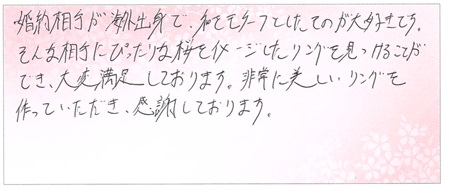 婚約相手が海外出身で、和をモチーフとしたものが大好きです。
そんな相手にぴったりな桜をイメージしたリングを見つけることが
でき、大変満足しております。非常に美しいリングを
作っていただき、感謝しております。